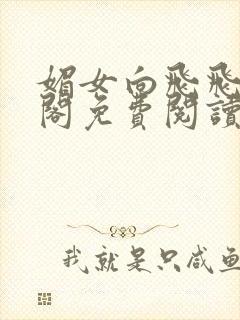 媚女向飛飛
閣免費閱讀
我就是只咸魚